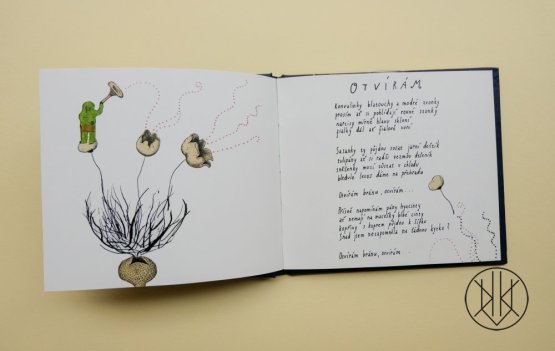 OTVÍRÁM
Konvalinky hlasouchy a modré zvonky
prosím ať si pohlídají rovné stonky
narcisy mírně hlavu skloní
fialky dál ať fialově voní
Sasanky ty půjdou svést jarní deštík
tulipány ať si radši vezmou deštník
sněženky musí zůstat v chladu
bledule letos dáme na přehradu
Otvírám bránu, otvírám...
Přísně napomínám pány hyacinty
ať nemají na macešky blbé
kopřivy s koprem půjdou k
Snad jsem nezapomněla na žádnou kytku?
Otvírám bránu, otvírám...